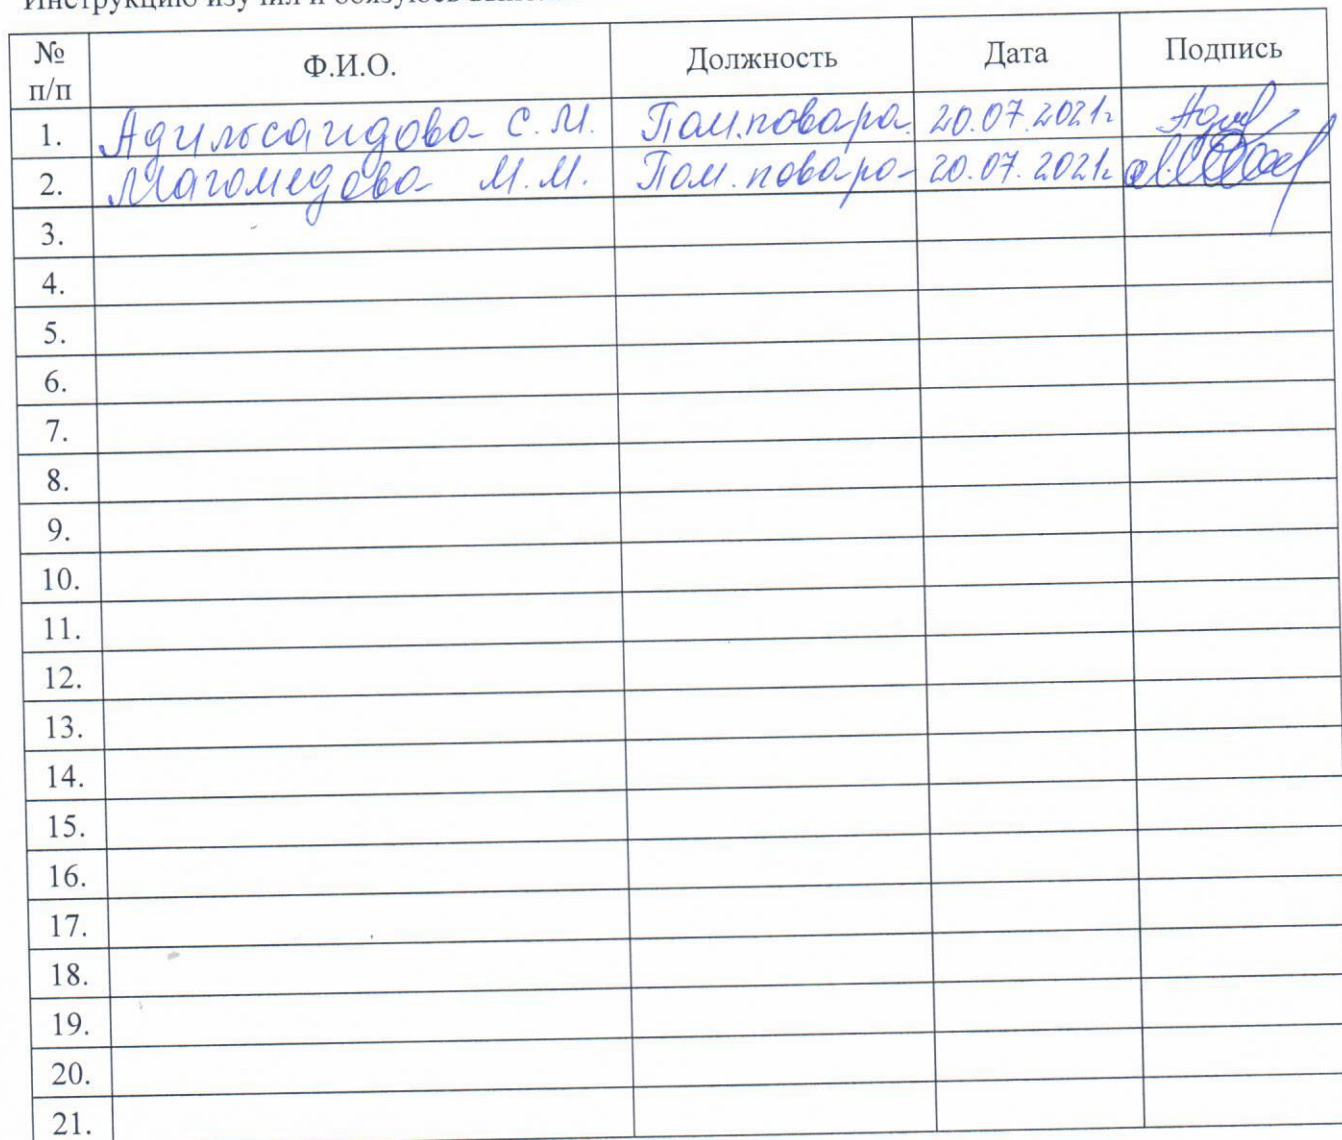 Инструкцию изучил и обязуюсь
№ п/п Ф.И.О. Должность Дата Подпись
1. Адильсаидова С.М. Пом.повара 20.07.2021г
2. Магомедова М.М. Пом.повара 20.07.2021г
3.
4.
5.
6.
7.
8.
9.
10.
11.
12.
13.
14.
15.
16.
17.
18.
19.
20.
21.